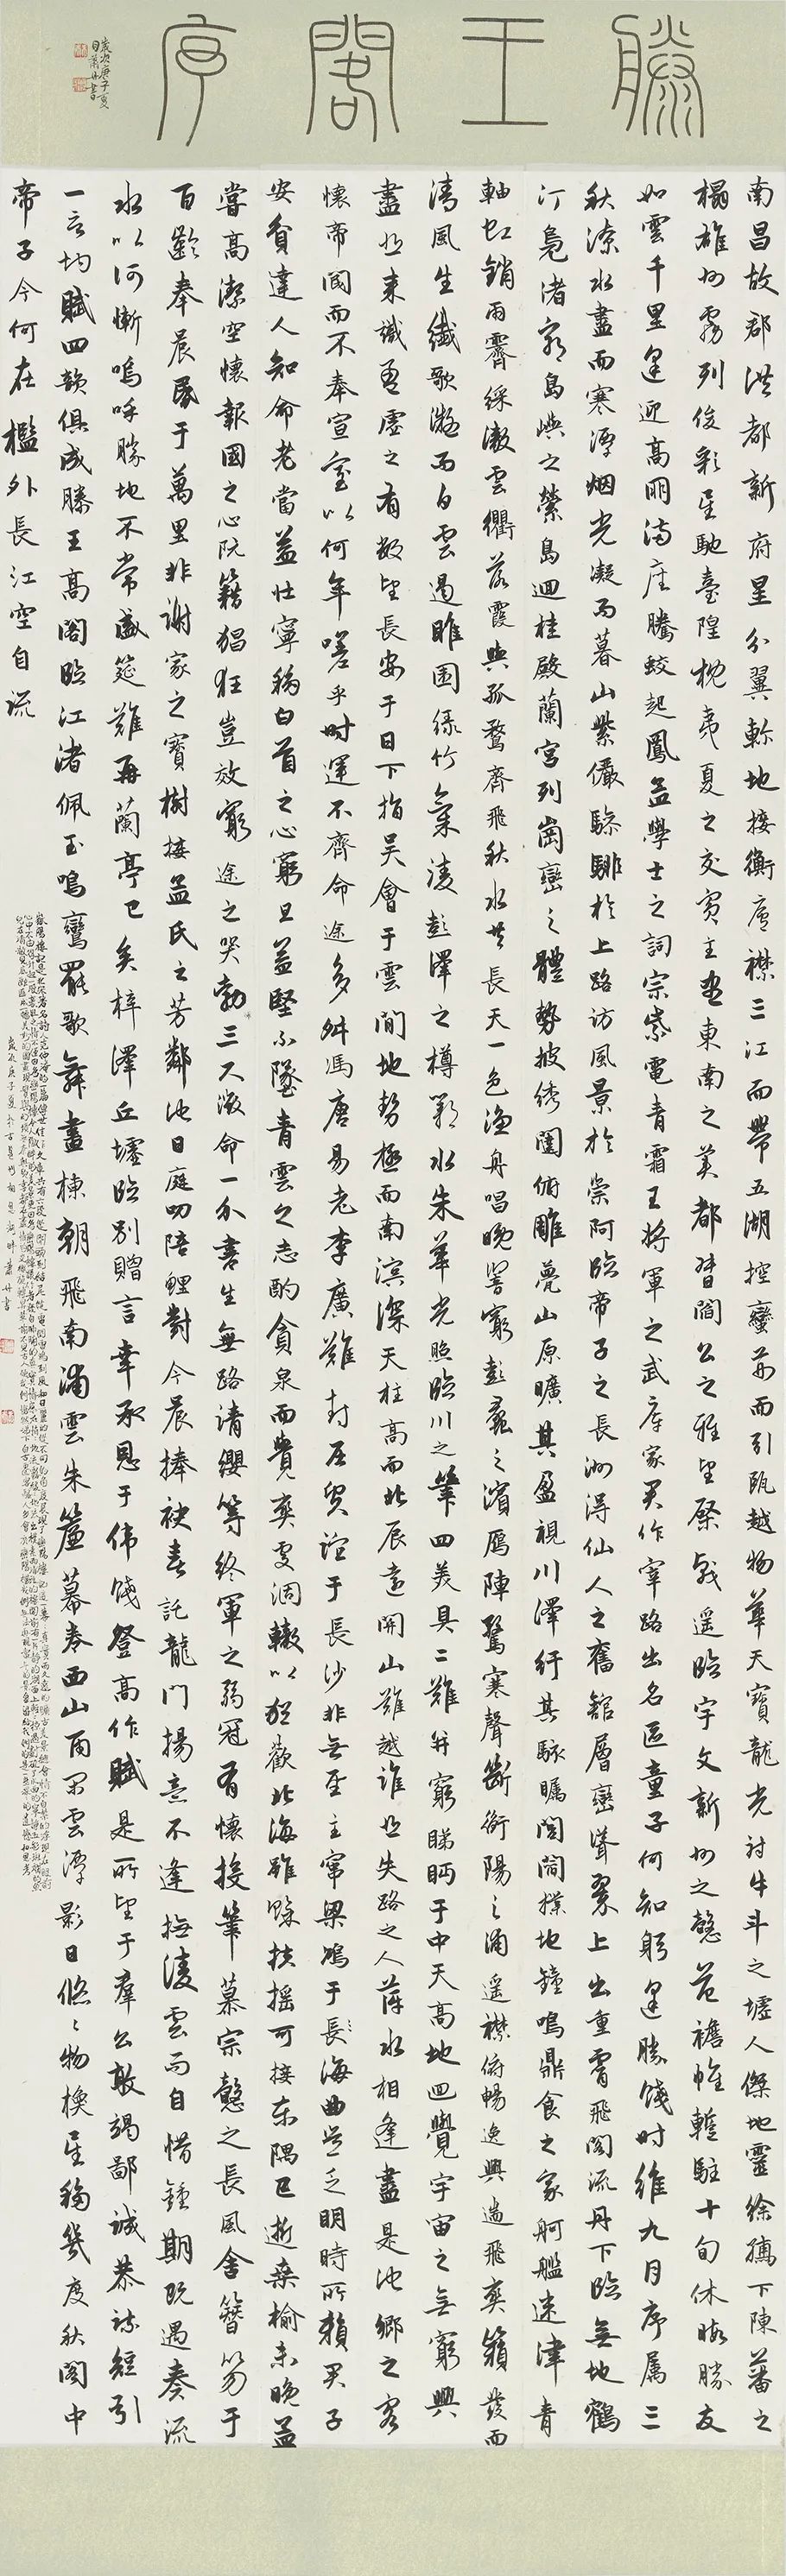 滕王閣序
歲次庚子夏
南昌故郡洪都新府星分翼軫地接衡廬襟三江而帶五湖控蠻荊而引甌越物華天寶龍光射牛斗之墟人傑地靈徐孺下陳蕃之
榻雄州霧列俊彩星馳臺隍枕夷夏之交賓主盡東南之美都督閻公之雅望棨戟遥臨宇文新州之懿範襜帷暫駐十旬休暇勝友
如雲千里逢迎高朋滿座騰蛟起鳳孟學士之詞宗紫電青霜王將軍之武庫家君作宰路出名區童子何知躬逢勝餞時維九月序屬三
秋潦水盡而寒潭烟光凝而暮山紫儼驂騑於上路訪風景於崇阿臨帝子之長洲得仙人之舊館層巒聳翠上出重霄飛閣流丹下臨無地鶴
汀鳧渚窮島嶼之縈島迴桂殿蘭宮列岡巒之體勢披繡闥俯雕甍山原曠其盈視川澤紆其駭矚閭閻撲地鐘鳴鼎食之家舸艦迷津青
軸虹銷雨霽綵澈雲衢落霞與孤鶩齊飛秋水共長天一色漁舟唱晚響窮彭蠡之濱雁陣驚寒聲斷衡陽之浦遥襟俯暢逸興遄飛爽籟發而
清風生纖歌凝而白雲遏睢園綠竹氣淩彭澤之樽鄴水朱華光照臨川之筆四美具二難并窮睇眄于中天高地迴覺宇宙之無窮興
盡悲來識盈虛之有數望長安于日下指吴會于雲間地勢極而南溟深天柱高而北辰遠關山難越誰悲失路之人萍水相逢盡是他鄉之客
懷帝閽而不奉宣室以何年嗟乎時運不齊命途多舛馮唐易老李廣難封屈賈誼于長沙非無聖主竄梁鴻于長海曲豈乏明時所賴君子
安貧達人知命老當益壯寧移白首之心窮且益堅不墜青雲之志酌貪泉而覺爽處涸轍以猶歡北海雖賒扶摇可接東隅已逝桑榆未晚孟
嘗高潔空懷報國之心阮籍猖狂豈效窮途之哭勃三尺微命一介書生無路請纓等終軍之弱冠有懷投筆慕宗慤之長風舍簪笏于
百齡奉晨昏于萬里非謝家之寶樹接孟氏之芳鄰他日庭叨陪鯉對今晨捧袂喜託龍門揚意不逢撫淩雲而自惜鍾期既遇奏流
水以何慚嗚呼勝地不常盛筵難再蘭亭已矣梓澤丘墟臨別贈言幸承恩于偉餞登高作賦是所望于群公敢竭鄙誠恭疏短引
一言均賦四韻俱成滕王高閣臨江渚佩玉鳴鸞罷歌舞畫棟朝飛南浦雲朱簾暮卷西山雨閑雲潭影日悠悠物换星移幾度秋閣中
帝子今何在檻外長江空自流